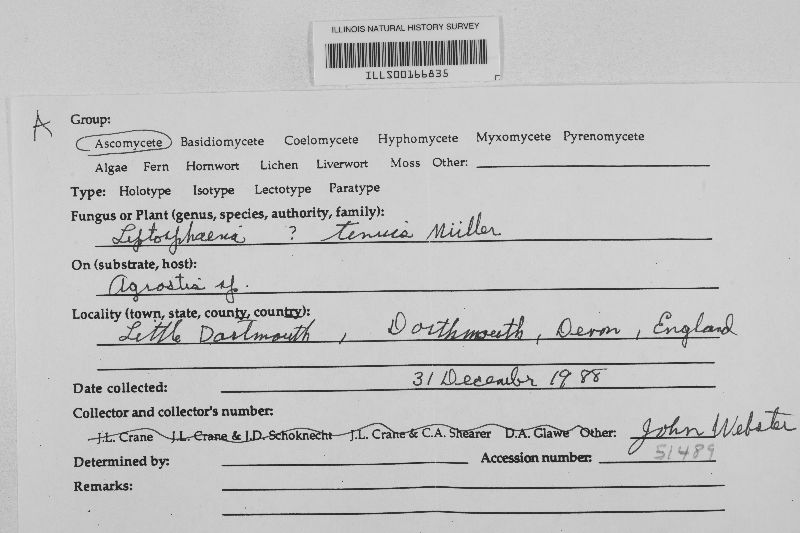 ILLINOIS NATURAL HISTORY SURVEY
ILLS00166835
A
Group:
Ascomycete Basidiomycete Coelomycete Hyphomycete Myxomycete Pyrenomycete
Algae Fern Hornwort Lichen Liverwort Moss Other:
Type: Holotype Isotype Lectotype Paratype
Fungus or Plant (genus, species, authority, family):
Leptosphaeria ? tenuis Müller
On (substrate, host):
Agrostis sp.
Locality (town, state, county, country):
Little Dartmouth, Dorthmouth, Devon, England
Date collected: 31 December 1988
Collector and collector's number:
J.L. Crane J.L. Crane & J.D. Schoknecht J.L. Crane & C.A. Shearer D.A. Glawe Other: John Webster
Determined by: Accession number: 51489
Remarks: